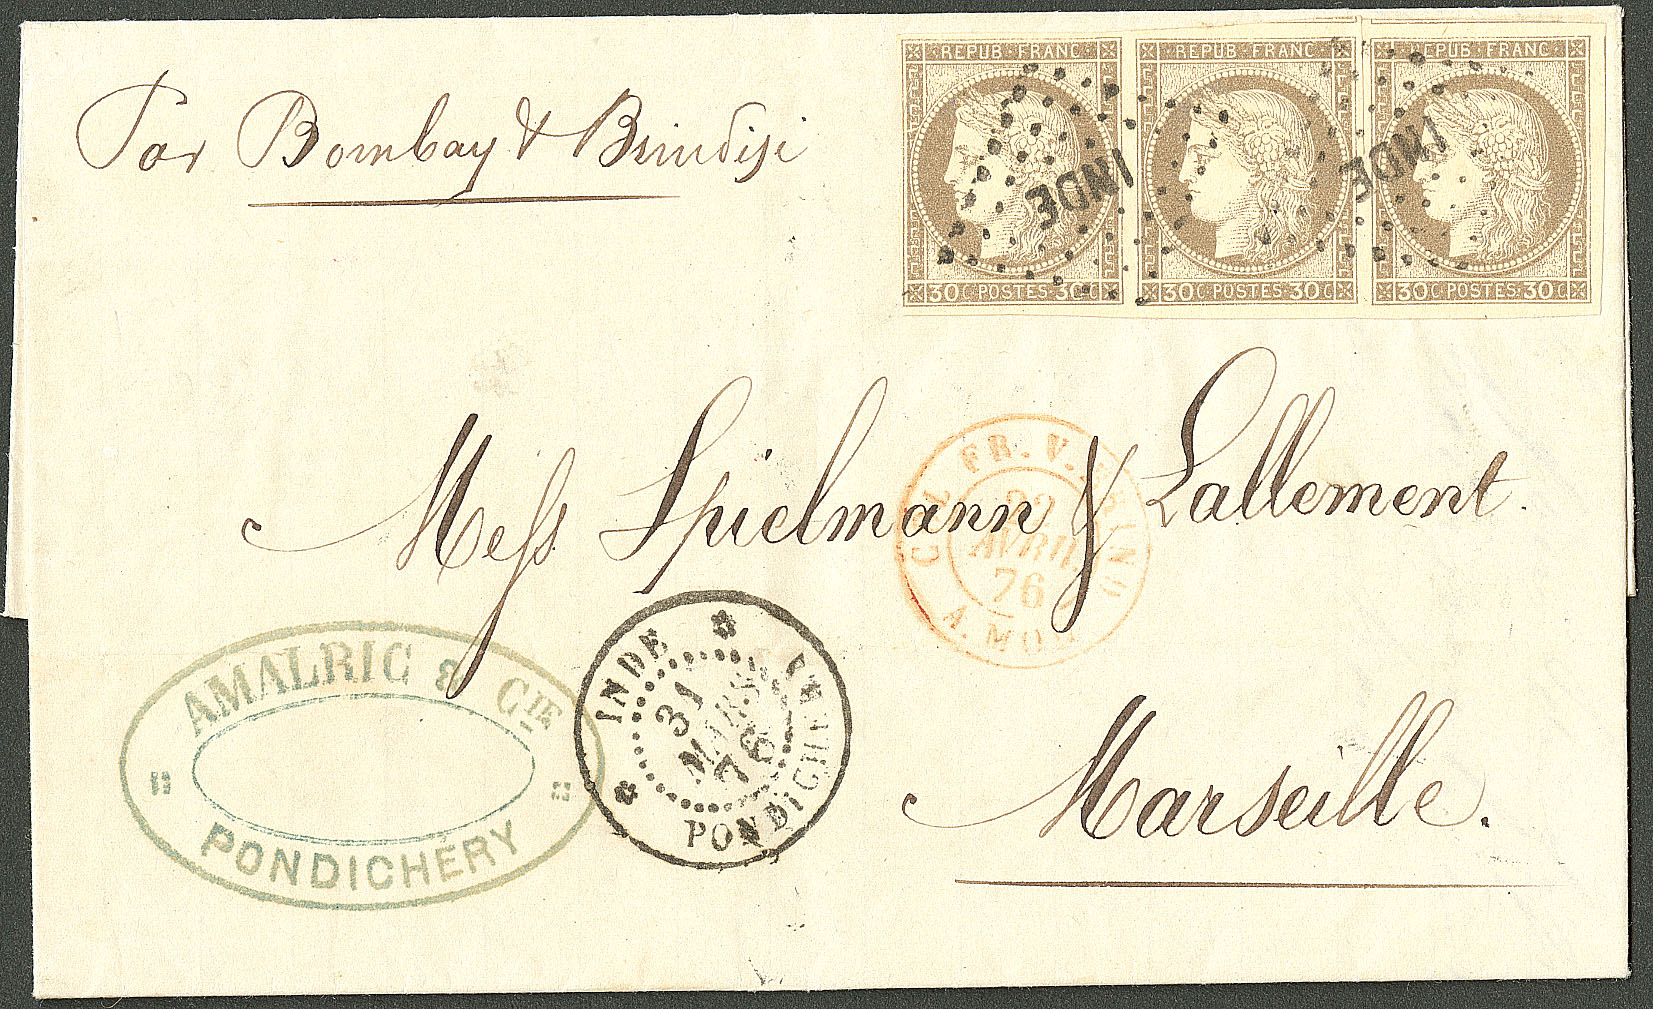 Par Bombay & Brindisi
REPUB FRANC
30 C POSTES 30 C
INDE
REPUB FRANC
30 C POSTES 30 C
REPUB FRANC
30 C POSTES 30 C
INDE
Mess Spielmann & Lallement.
Marseille.
COL. FR. V. BRIND
22
AVRIL
76
A. MOD
INDE
31
MARS
76
PONDICHERY
AMALRIC & CIE
PONDICHÉRY